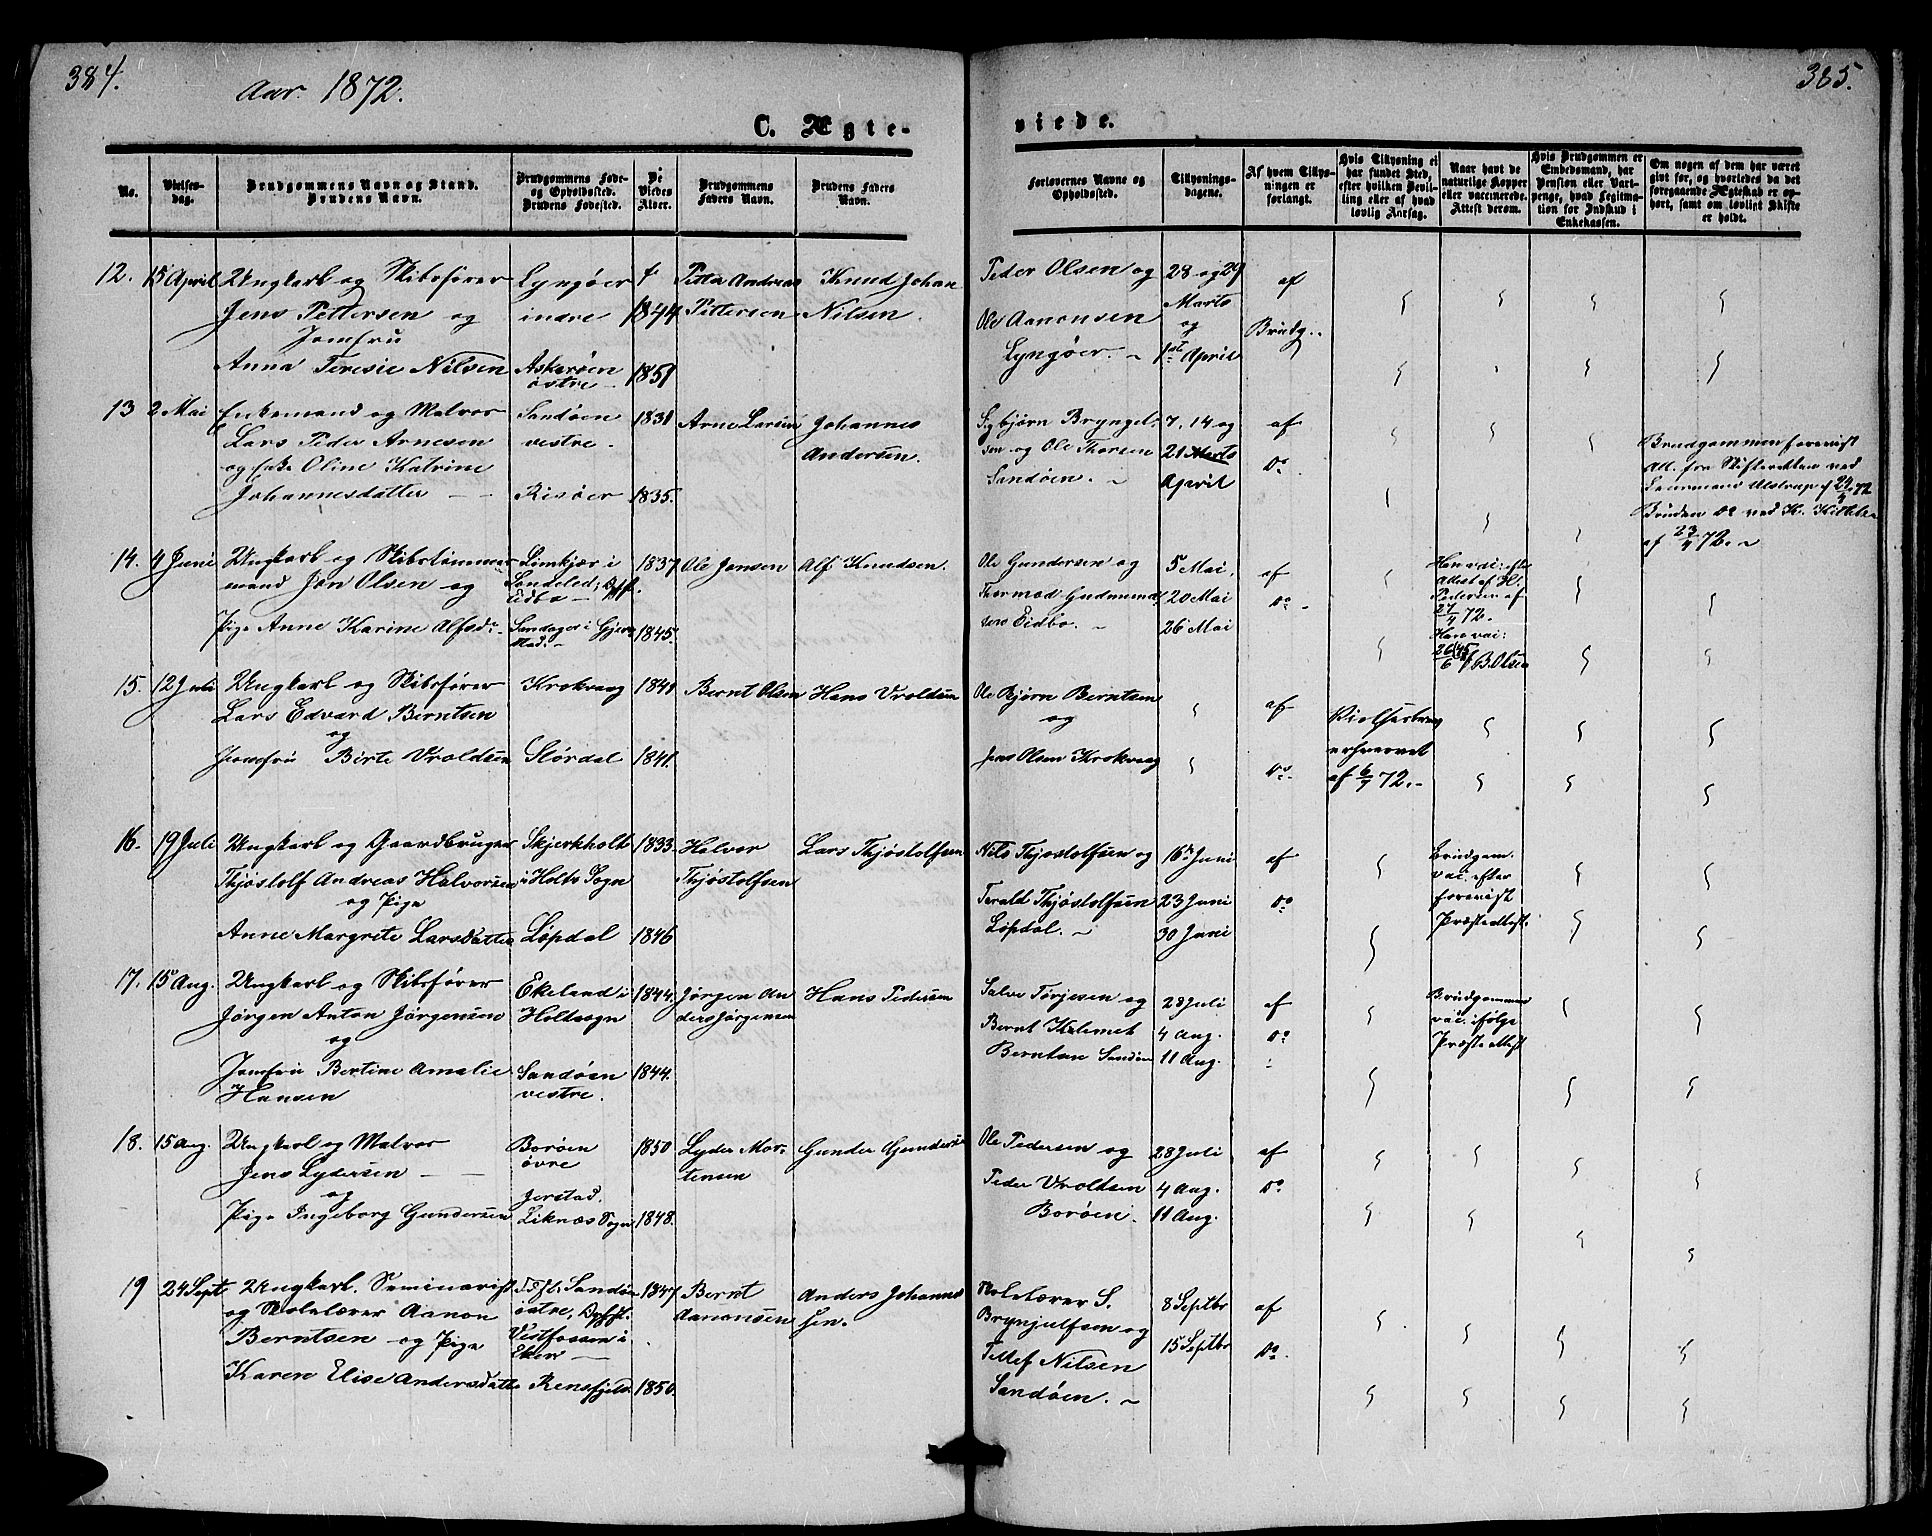 384.
Aar 1872.
385.
C. Ægte-
viede.
No.
Vielses-
dag.
Brudgommens Navn og Stand.
Brudens Navn.
Brudgommens Føde-
og Opholdssted.
Brudens Fødested.
De
Viedes
Alder.
Brudgommens
Faders Navn.
Brudens Faders
Navn.
Forlovernes Navne og
Opholdssted.
Tillysnings-
dagene.
Af hvem Tillys-
ningen er
forlangt.
Hvis Tillysning ei
har fundet Sted,
efter hvilken Bevil-
ling eller af hvad
lovlig Aarsag.
Naar havt de
naturlige Kopper
eller vaccinerede.
Attest derom.
Hvis Brudgommen er
Embedsmand, har
Pension eller Vart-
penge, hvad Legitima-
tion for Indskud i
Enkekassen.
Om nogen af dem har været
gift før, og hvorledes da det
foregaaende Ægteskab er op-
hørt, samt om lovligt Skifte
er holdt.
12. 15 April Ungkarl og Skibsfører
Jens Pettersen og
Jomfru
Anna Teresie Nilsen
Lyngøer
indre
Askerøen
østre
1844
1851
Petter Andreas
Pettersen
Knud Johan
Nilsen.
Peder Olsen og
Ole Aanonsen
Lyngøer. ~
28 og 29
Marts
og
1st April
af
Brudg..
13 2 Mai Enkemand og Matros
Lars Peder Arnesen
og Enke Oline Katrine
Johannesdatter
Sandøen
vestre.
Risøer
1831
1835.
Arne Larsen
Johannes
Andersen.
Sigbjørn Bryngel-
sen og Ole Thorsen
Sandøen. ~
7, 14 og
21 Marts
April
af
Do
Brudgommen forevist
Att. fra Skifteretten ved
Lensmand Alstrup af 24/4 72
Bruden Do ved K.
af 23/4 72. ~
14. 4 Juni Ungkarl og Skibstømmer-
mand Jon Olsen og
Pige Anne Karine Alfsd.
Limkjær i
Søndeled, Oph.
Eidbo
Sandager i Gjer-
stad. ~
1837.
1845.
Ole Jensen
Alf Knudsen.
Ole Gundersen og
Thormod Gudmund-
sen Eidbo. ~
5 Mai,
20 Mai
26 Mai
af
Do
Han vac: eft
Attest af H.
Pedersen af
27/4 72.
Hun vac:
26/6 45 af B. Olsen
15. 12 Juli Ungkarl og Skibsfører
Lars Edvard Berntsen
og
Jomfru Birte Vroldsen
Krokvaag
Størdal
1841
1841.
Bernt Olsen
Hans Vroldsen
Ole Bjørn Berntsen
og
Jens Olsen Krokvaag
af
Do
Vielsesbrev
erhvervet
af 6/7 72. -
16. 19 Juli Ungkarl og Gaardbruger
Thjøstolf Andreas Halvorsen
og Pige
Anne Margrete Larsdatter
Skjerkholt
i Holts Sogn
Løpdal
1833.
1846
Halvor
Thjøstolfsen
Lars Thjøstolfsen
Nils Thjøstolfsen og
Terald Thjøstolfsen
Løpdal. ~
16de Juni
23 Juni
30 Juni
af
Do
Brudgom.
vac. efter
forevist
Præsteattest.
17. 15 Aug. Ungkarl og Skibsfører
Jørgen Anton Jørgensen
og
Jomfru Bertine Amalie
Hansen
Ekeland i
Holtsogn
Sandøen
vestre.
1844.
1844.
Jørgen An
ders Jørgensen
Hans Pedersen
Salve Terjesen og
Bernt Kalemet
Berntsen Sandøen
28 Juli
4 Aug.
11 Aug.
af
Do
Brudgommen
vac. ifølge
Præsteattest
18. 15 Aug. Ungkarl og Matros
Jens Lydersen
og
Pige Ingeborg Gundersen
Borøen
øvre
Jerstad,
Liknæs Sogn
1850
1848.
Lyder Mor-
tensen
Gunder Gundersen
Ole Pedersen og
Peder Vroldsen
Borøen.
28 Juli
4 Aug.
11 Aug.
af
Do
19 24 Sept Ungkarl. Seminarist
og Skolelærer Aanon
Berntsen og Pige
Karen Elise Andersdatter
Sandøen
østre, Ophst.
Vestfossen i
Eker
Rensfjeld
1847
1850.
Bernt
Aanonsen
Anders Johannes
sen.
Skolelærer S.
Brynjulfsen og
Tellef Nilsen
Sandøen. ~
8 Septbr
15 Septbr
af
Do